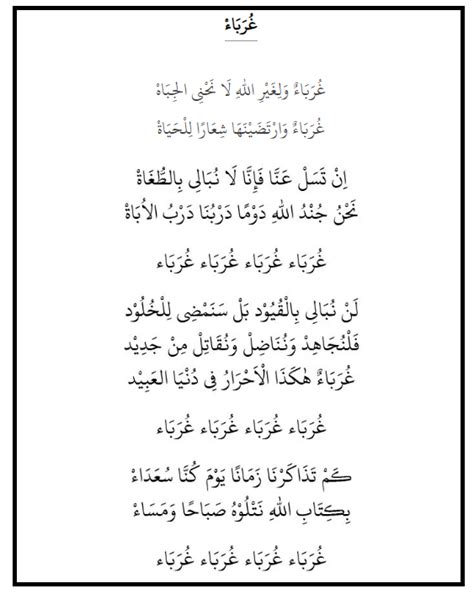 غُرَبَاءْ
غُرَبَاءٌ وَلِغَيْرِ اللهِ لَا نَحْنِى الجِبَاهْ
غُرَبَاءٌ وَارْتَضَيْنَهَا شِعَارًا لِلْحَيَاةْ
اِنْ تَسَلْ عَنَّا فَإِنَّا لَا نُبَالِى بِالطُّغَاةْ
نَحْنُ جُنْدُ اللهِ دَوْمًا دَرْبُنَا دَرْبُ الأُبَاةْ
غُرَبَاء غُرَبَاء غُرَبَاء غُرَبَاء
لَنْ نُبَالِى بِالْقُيُوْد بَلْ سَنَمْضِى لِلْخُلُوْد
فَلْنُجَاهِدْ وَنُنَاضِلْ وَنُقَاتِلْ مِنْ جَدِيْد
غُرَبَاءٌ هٰكَذَا الْاَحْرَارُ فِى دُنْيَا العَبِيْد
غُرَبَاء غُرَبَاء غُرَبَاء غُرَبَاء
كَمْ تَذَاكَرْنَا زَمَانًا يَوْمَ كُنَّا سُعَدَاءْ
بِكِتَابِ اللهِ نَتْلُوْهُ صَبَاحًا وَمَسَاءْ
غُرَبَاء غُرَبَاء غُرَبَاء غُرَبَاء